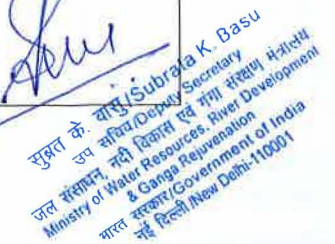 सुब्रत के. बासु/Subrata K. Basu
उप सचिव/Deputy Secretary
जल संसाधन, नदी विकास एवं गंगा संरक्षण मंत्रालय
Ministry of Water Resources, River Development
& Ganga Rejuvenation
भारत सरकार/Government of India
नई दिल्ली/New Delhi-110001